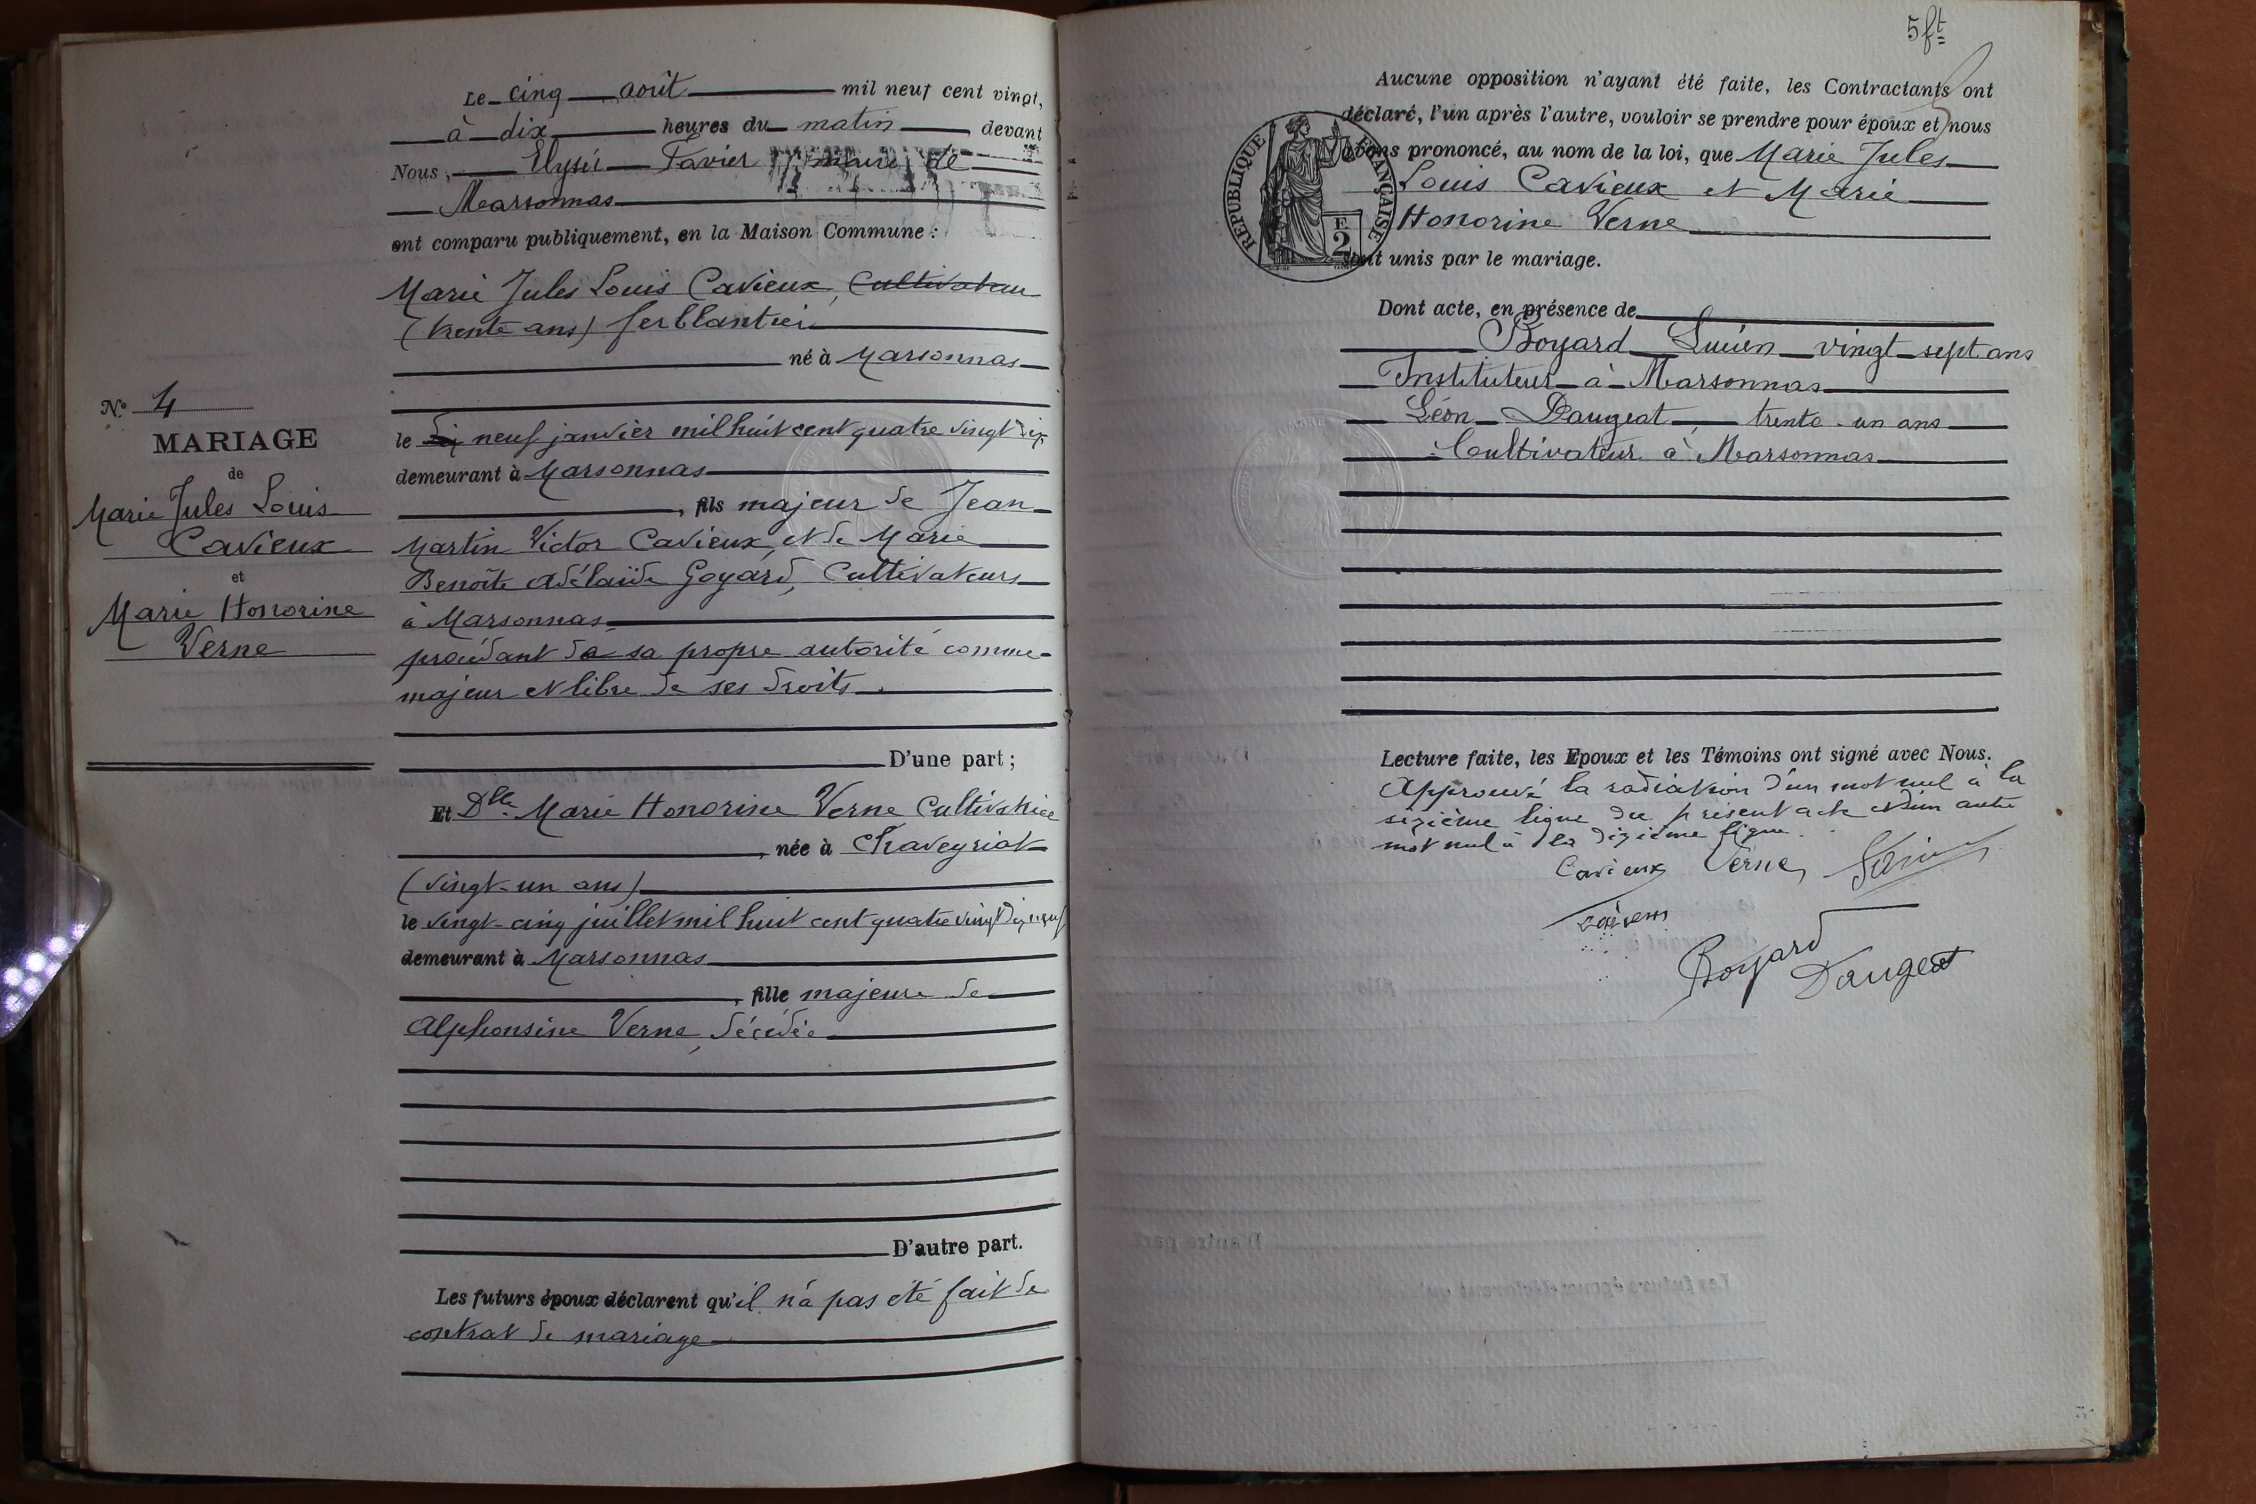 N.º 4
MARIAGE
de
Marie Jules Louis
Cavieux
et
Marie Honorine
Verne
Le cinq août mil neuf cent vingt,
à dix heures du matin devant
Nous, Elysée Favier maire de
Marsonnas
ont comparu publiquement, en la Maison Commune :
Marie Jules Louis Cavieux, Cultivateur
(trente ans) ferblantier
né à Marsonnas
le dix neuf janvier mil huit cent quatre vingt dix
demeurant à Marsonnas
, fils majeur de Jean
Martin Victor Cavieux, et de Marie
Benoîte Adélaïde Goyard, Cultivateurs
à Marsonnas
procédant de sa propre autorité comme
majeur et libre de ses droits.
D'une part ;
Et Dlle Marie Honorine Verne Cultivatrice
, née à Chaveyriat
(vingt-un ans)
le vingt-cinq juillet mil huit cent quatre vingt dix neuf
demeurant à Marsonnas
, fille majeure de
Alphonsine Verne, décédée
D'autre part.
Les futurs époux déclarent qu'il n'a pas été fait de
contrat de mariage
5 ft
Aucune opposition n'ayant été faite, les Contractants ont
déclaré, l'un après l'autre, vouloir se prendre pour époux et nous
avons prononcé, au nom de la loi, que Marie Jules
Louis Cavieux et Marie
Honorine Verne
sont unis par le mariage.
REPUBLIQUE FRANÇAISE
E
2
Dont acte, en présence de
Boyard Lucien vingt-sept ans
Instituteur à Marsonnas
Léon Daugeat, trente-un ans
Cultivateur à Marsonnas
Lecture faite, les Epoux et les Témoins ont signé avec Nous.
Approuvé la radiation d'un mot nul à la
sixième ligne du présent acte et d'un autre
mot nul à la dixième ligne.
Cavieux Verne
Boyard
Daugeat